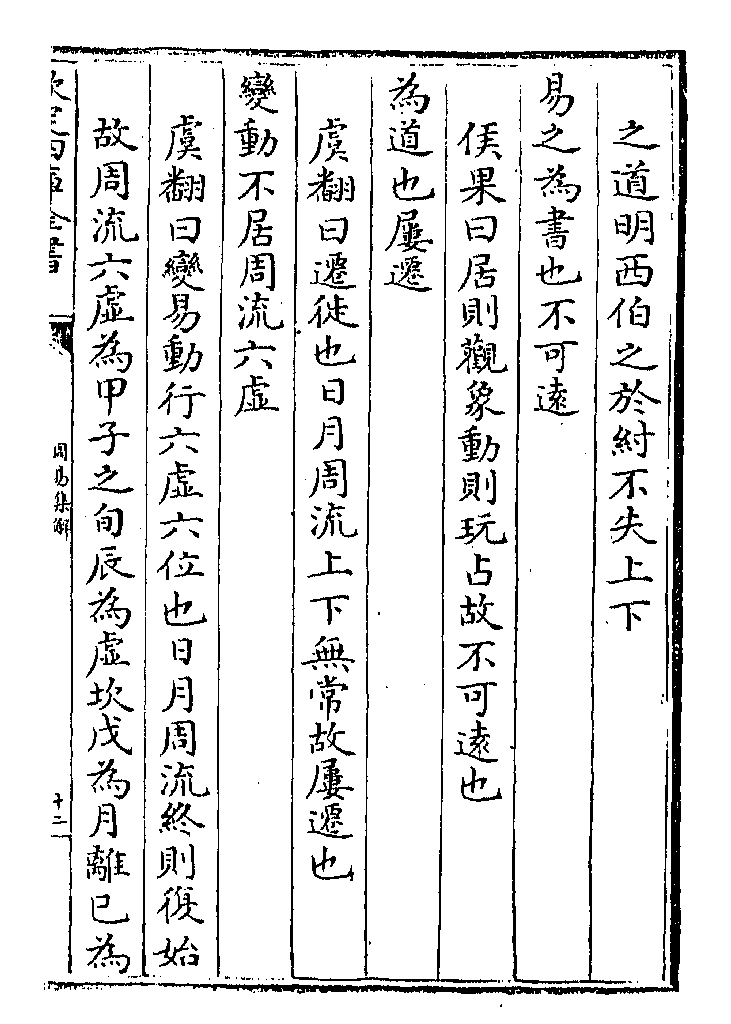 之道明西伯之於紂不失上下
易之為書也不可逺
侯果曰居則觀象動則玩占故不可逺也
為道也屢遷
虞翻曰遷徙也日月周流上下無常故屢遷也
變動不居周流六虛
虞翻曰變易動行六虛六位也日月周流終則復始
故周流六虛為甲子之旬辰為虛坎戊為月離已為
欽定四庫全書
周易集解
十二